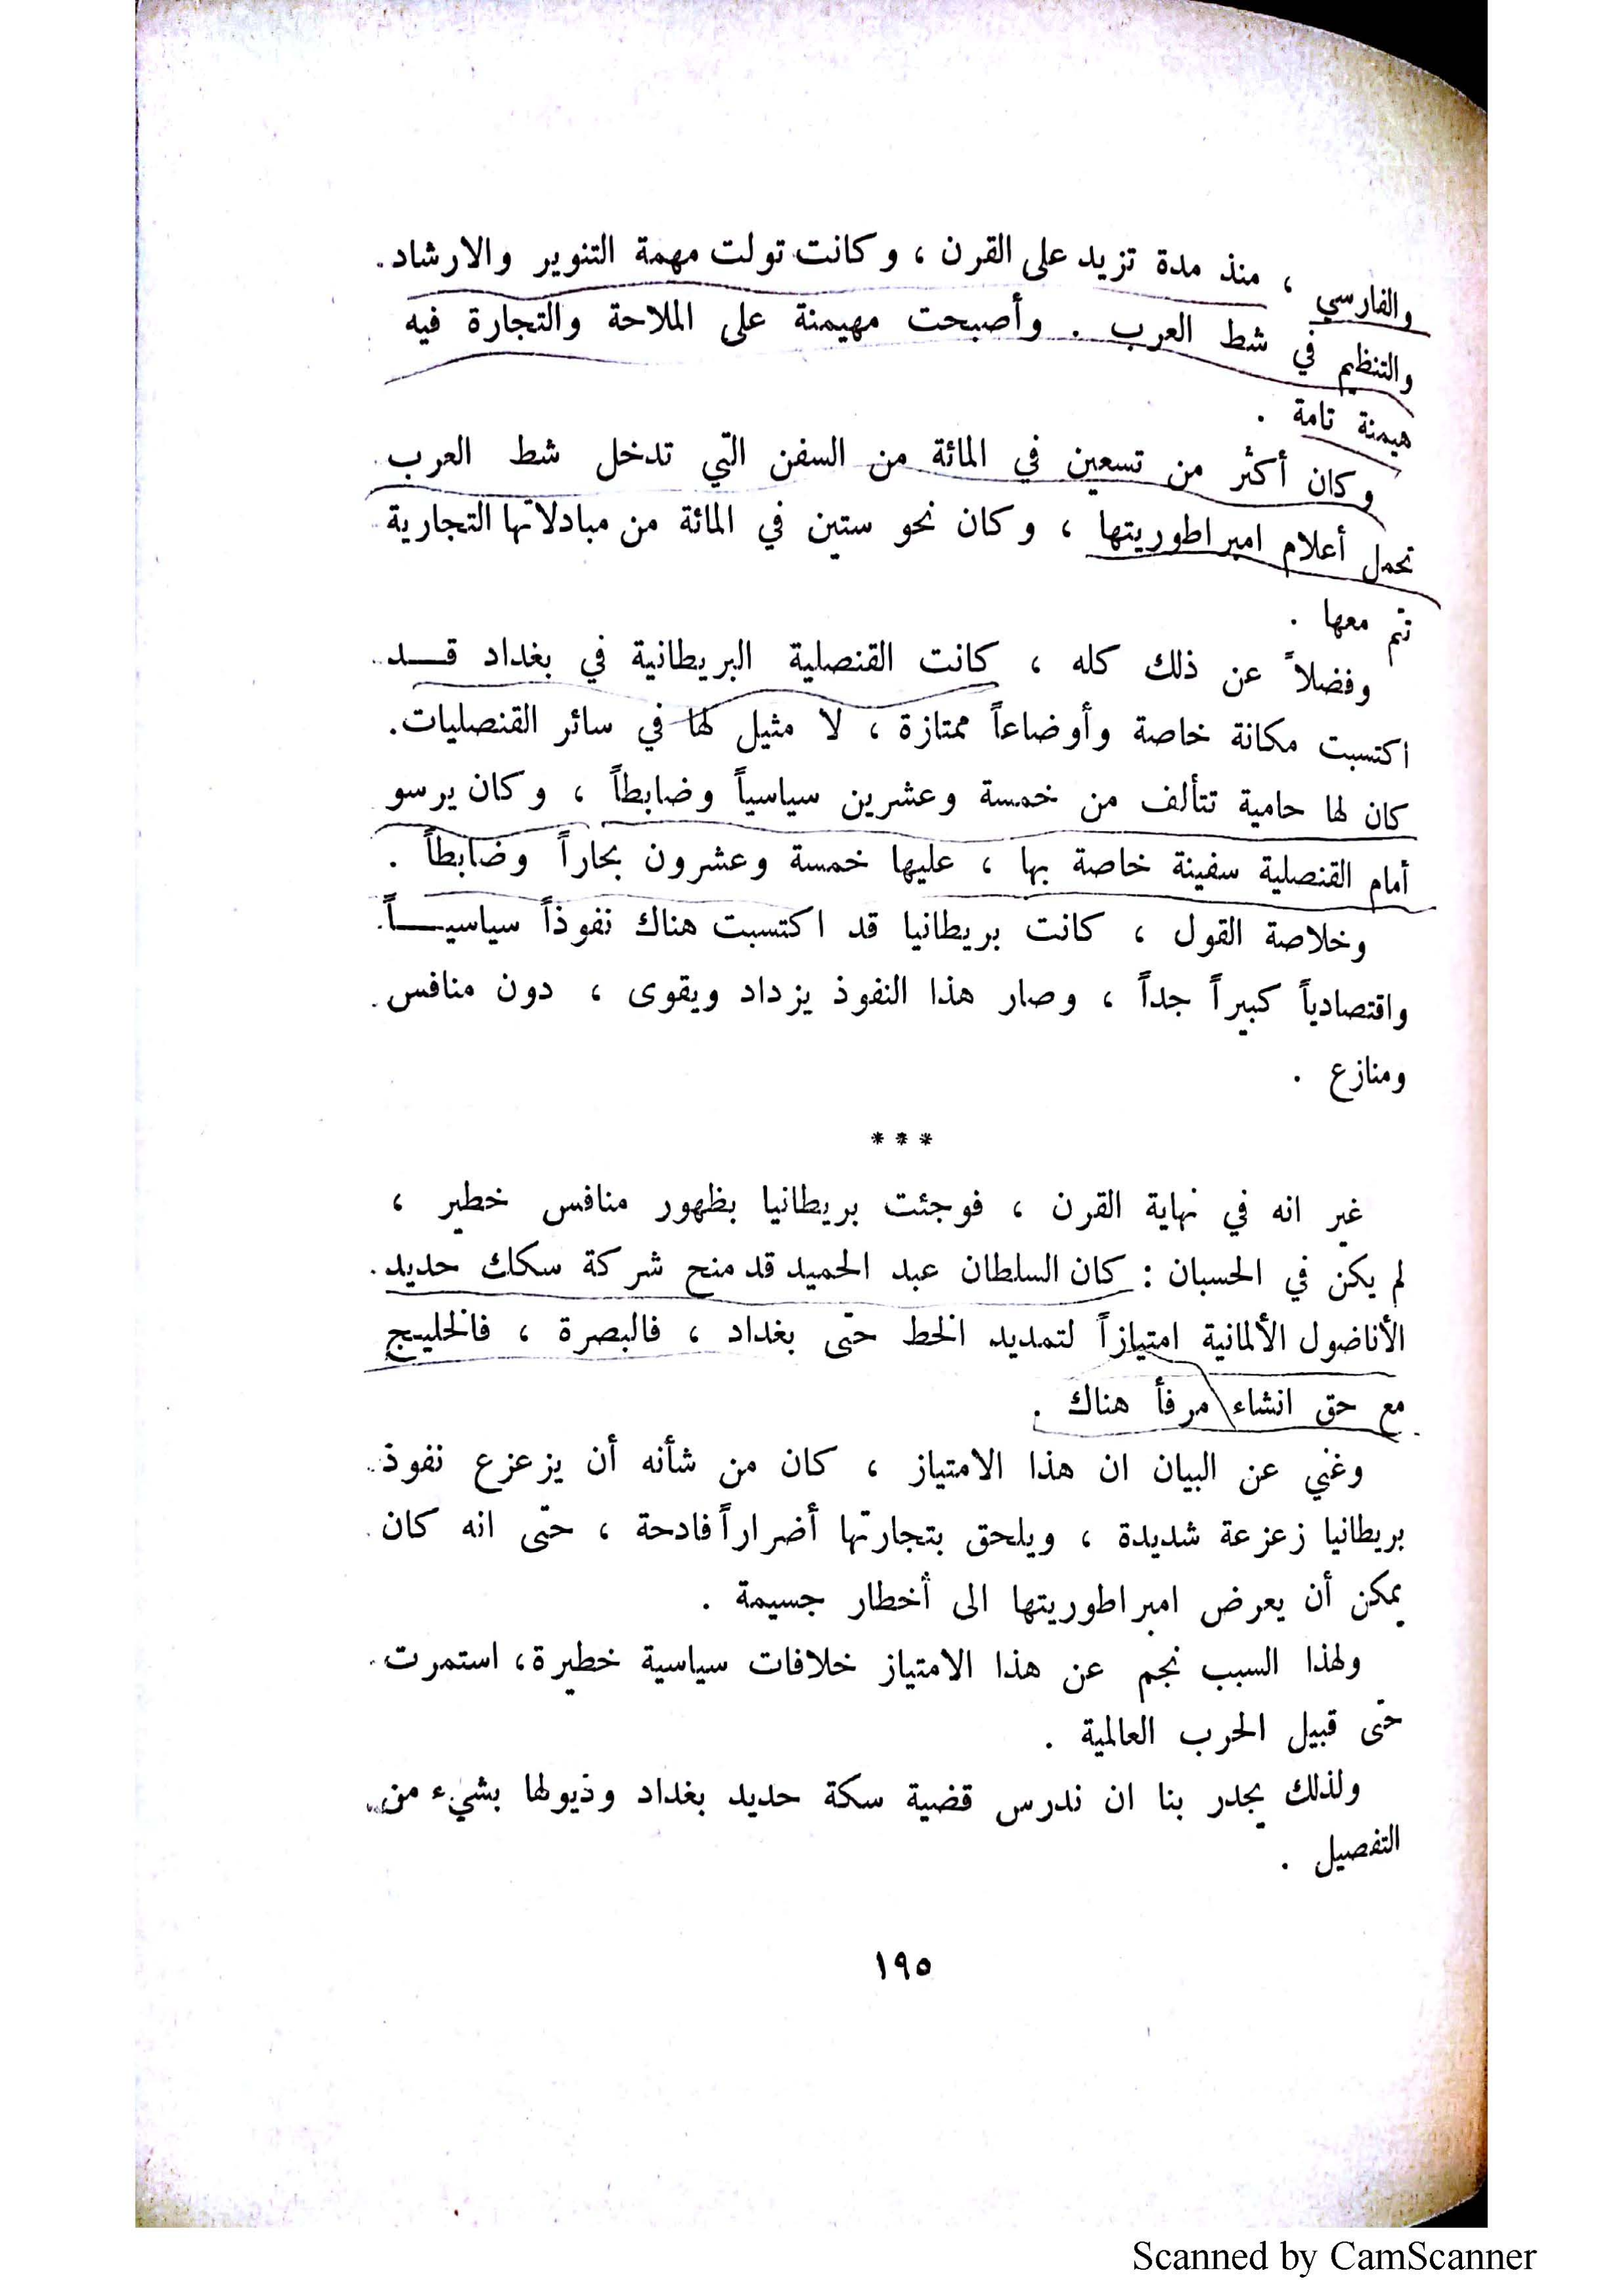 والفارسي ، منذ مدة تزيد على القرن ، وكانت تولت مهمة التنوير والارشاد
والتنظيم في شط العرب . وأصبحت مهيمنة على الملاحة والتجارة فيه
هيمنة تامة .
وكان أكثر من تسعين في المائة من السفن التي تدخل شط العرب
تحمل أعلام امبراطوريتها ، وكان نحو ستين في المائة من مبادلاتها التجارية
تتم معها .
وفضلاً عن ذلك كله ، كانت القنصلية البريطانية في بغداد قــد
اكتسبت مكانة خاصة وأوضاعاً ممتازة ، لا مثيل لها في سائر القنصليات.
كان لها حامية تتألف من خمسة وعشرين سياسياً وضابطاً ، وكان يرسو
أمام القنصلية سفينة خاصة بها ، عليها خمسة وعشرون بحاراً وضابطاً .
وخلاصة القول ، كانت بريطانيا قد اكتسبت هناك نفوذاً سياسيــاً
واقتصادياً كبيراً جداً ، وصار هذا النفوذ يزداد ويقوى ، دون منافس
ومنازع .
***
غير انه في نهاية القرن ، فوجئت بريطانيا بظهور منافس خطير ،
لم يكن في الحسبان : كان السلطان عبد الحميد قد منح شركة سكك حديد
الأناضول الألمانية امتيازاً لتمديد الخط حتى بغداد ، فالبصرة ، فالخليج
مع حق انشاء مرفأ هناك .
وغني عن البيان ان هذا الامتياز ، كان من شأنه أن يزعزع نفوذ
بريطانيا زعزعة شديدة ، ويلحق بتجارتها أضراراً فادحة ، حتى انه كان
يمكن أن يعرض امبراطوريتها الى أخطار جسيمة .
ولهذا السبب نجم عن هذا الامتياز خلافات سياسية خطيرة، استمرت
حتى قبيل الحرب العالمية .
ولذلك يجدر بنا ان ندرس قضية سكة حديد بغداد وذيولها بشيء من
التفصيل .
١٩٥
Scanned by CamScanner